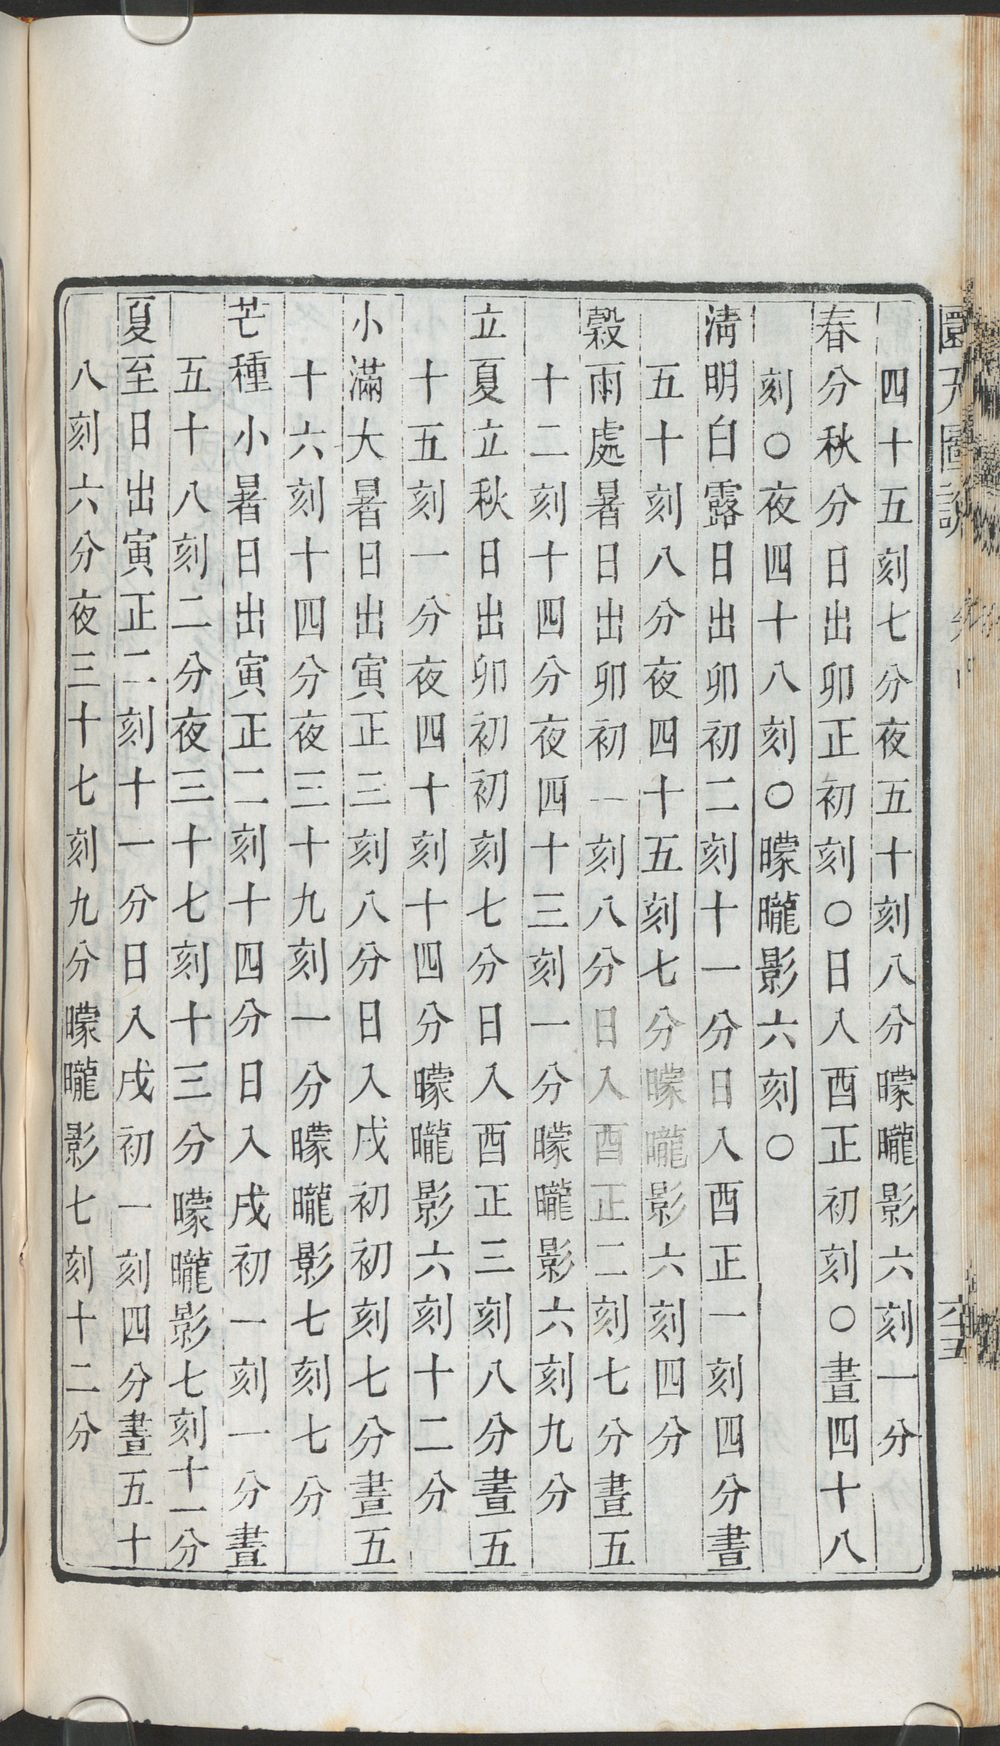 四十五刻七分夜五十刻八分曚曨影六刻一分
春分秋分日出卯正初刻〇日入酉正初刻〇晝四十八
刻〇夜四十八刻〇曚曨影六刻〇
淸明白露日出卯初二刻十一分日入酉正一刻四分晝
五十刻八分夜四十五刻七分曚曨影六刻四分
穀雨處暑日出卯初一刻八分日入酉正二刻七分晝五
十二刻十四分夜四十三刻一分曚曨影六刻九分
立夏立秋日出卯初初刻七分日入酉正三刻八分晝五
十五刻一分夜四十刻十四分曚曨影六刻十二分
小滿大暑日出寅正三刻八分日入戌初初刻七分晝五
十六刻十四分夜三十九刻一分曚曨影七刻七分
芒種小暑日出寅正二刻十四分日入戌初一刻一分晝
五十八刻二分夜三十七刻十三分曚曨影七刻十一分
夏至日出寅正二刻十一分日入戌初一刻四分晝五十
八刻六分夜三十七刻九分曚曨影七刻十二分